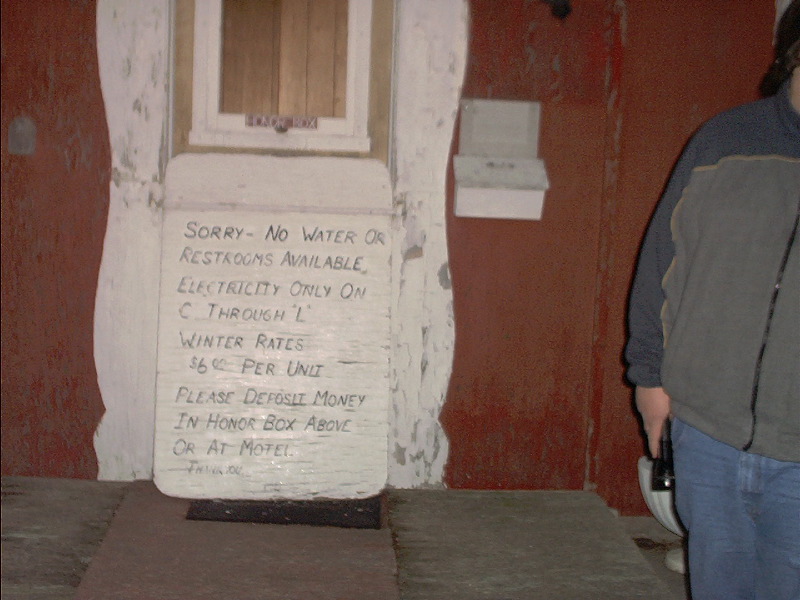 HONOR BOX
SORRY- NO WATER OR
RESTROOMS AVAILABLE.
ELECTRICITY ONLY ON
C THROUGH "L"
WINTER RATES
$6.00 PER UNIT
PLEASE DEPOSIT MONEY
IN HONOR BOX ABOVE
OR AT MOTEL.
THANK YOU